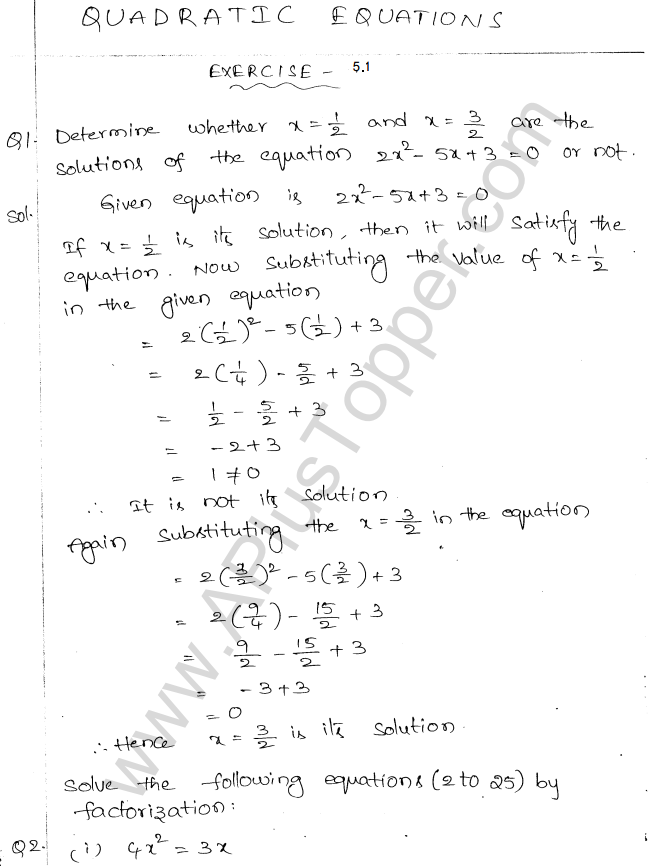 QUADRATIC EQUATIONS
EXERCISE - 5.1
Q1. Determine whether x = 1/2 and x = 3/2 are the
solutions of the equation 2x² - 5x + 3 = 0 or not.
Sol. Given equation is 2x² - 5x + 3 = 0
If x = 1/2 is its solution, then it will satisfy the
equation. Now substituting the value of x = 1/2
in the given equation
= 2(1/2)² - 5(1/2) + 3
= 2(1/4) - 5/2 + 3
= 1/2 - 5/2 + 3
= -2 + 3
= 1 ≠ 0
∴ It is not its solution.
Again substituting the x = 3/2 in the equation
= 2(3/2)² - 5(3/2) + 3
= 2(9/4) - 15/2 + 3
= 9/2 - 15/2 + 3
= -3 + 3
= 0
∴ Hence x = 3/2 is its solution.
Solve the following equations (2 to 25) by
factorization:
Q2. (i) 4x² = 3x
www.APlusTopper.com